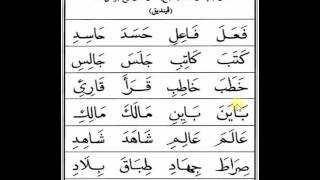 (ڤينديق)
فَعَلَ فَاعِلِ حَسَدَ حَاسِدِ
كَتَبَ كَاتِبِ جَلَسَ جَالِسِ
خَطَبَ خَاطِبِ قَرَأَ قَارِئِ
بَايَنَ بَايِنِ مَالَكَ مَالِكِ
عَالَمَ عَالِمِ شَاهَدَ شَاهِدِ
صِرَاطَ جِهَادِ طِبَاقَ بِلَادِ